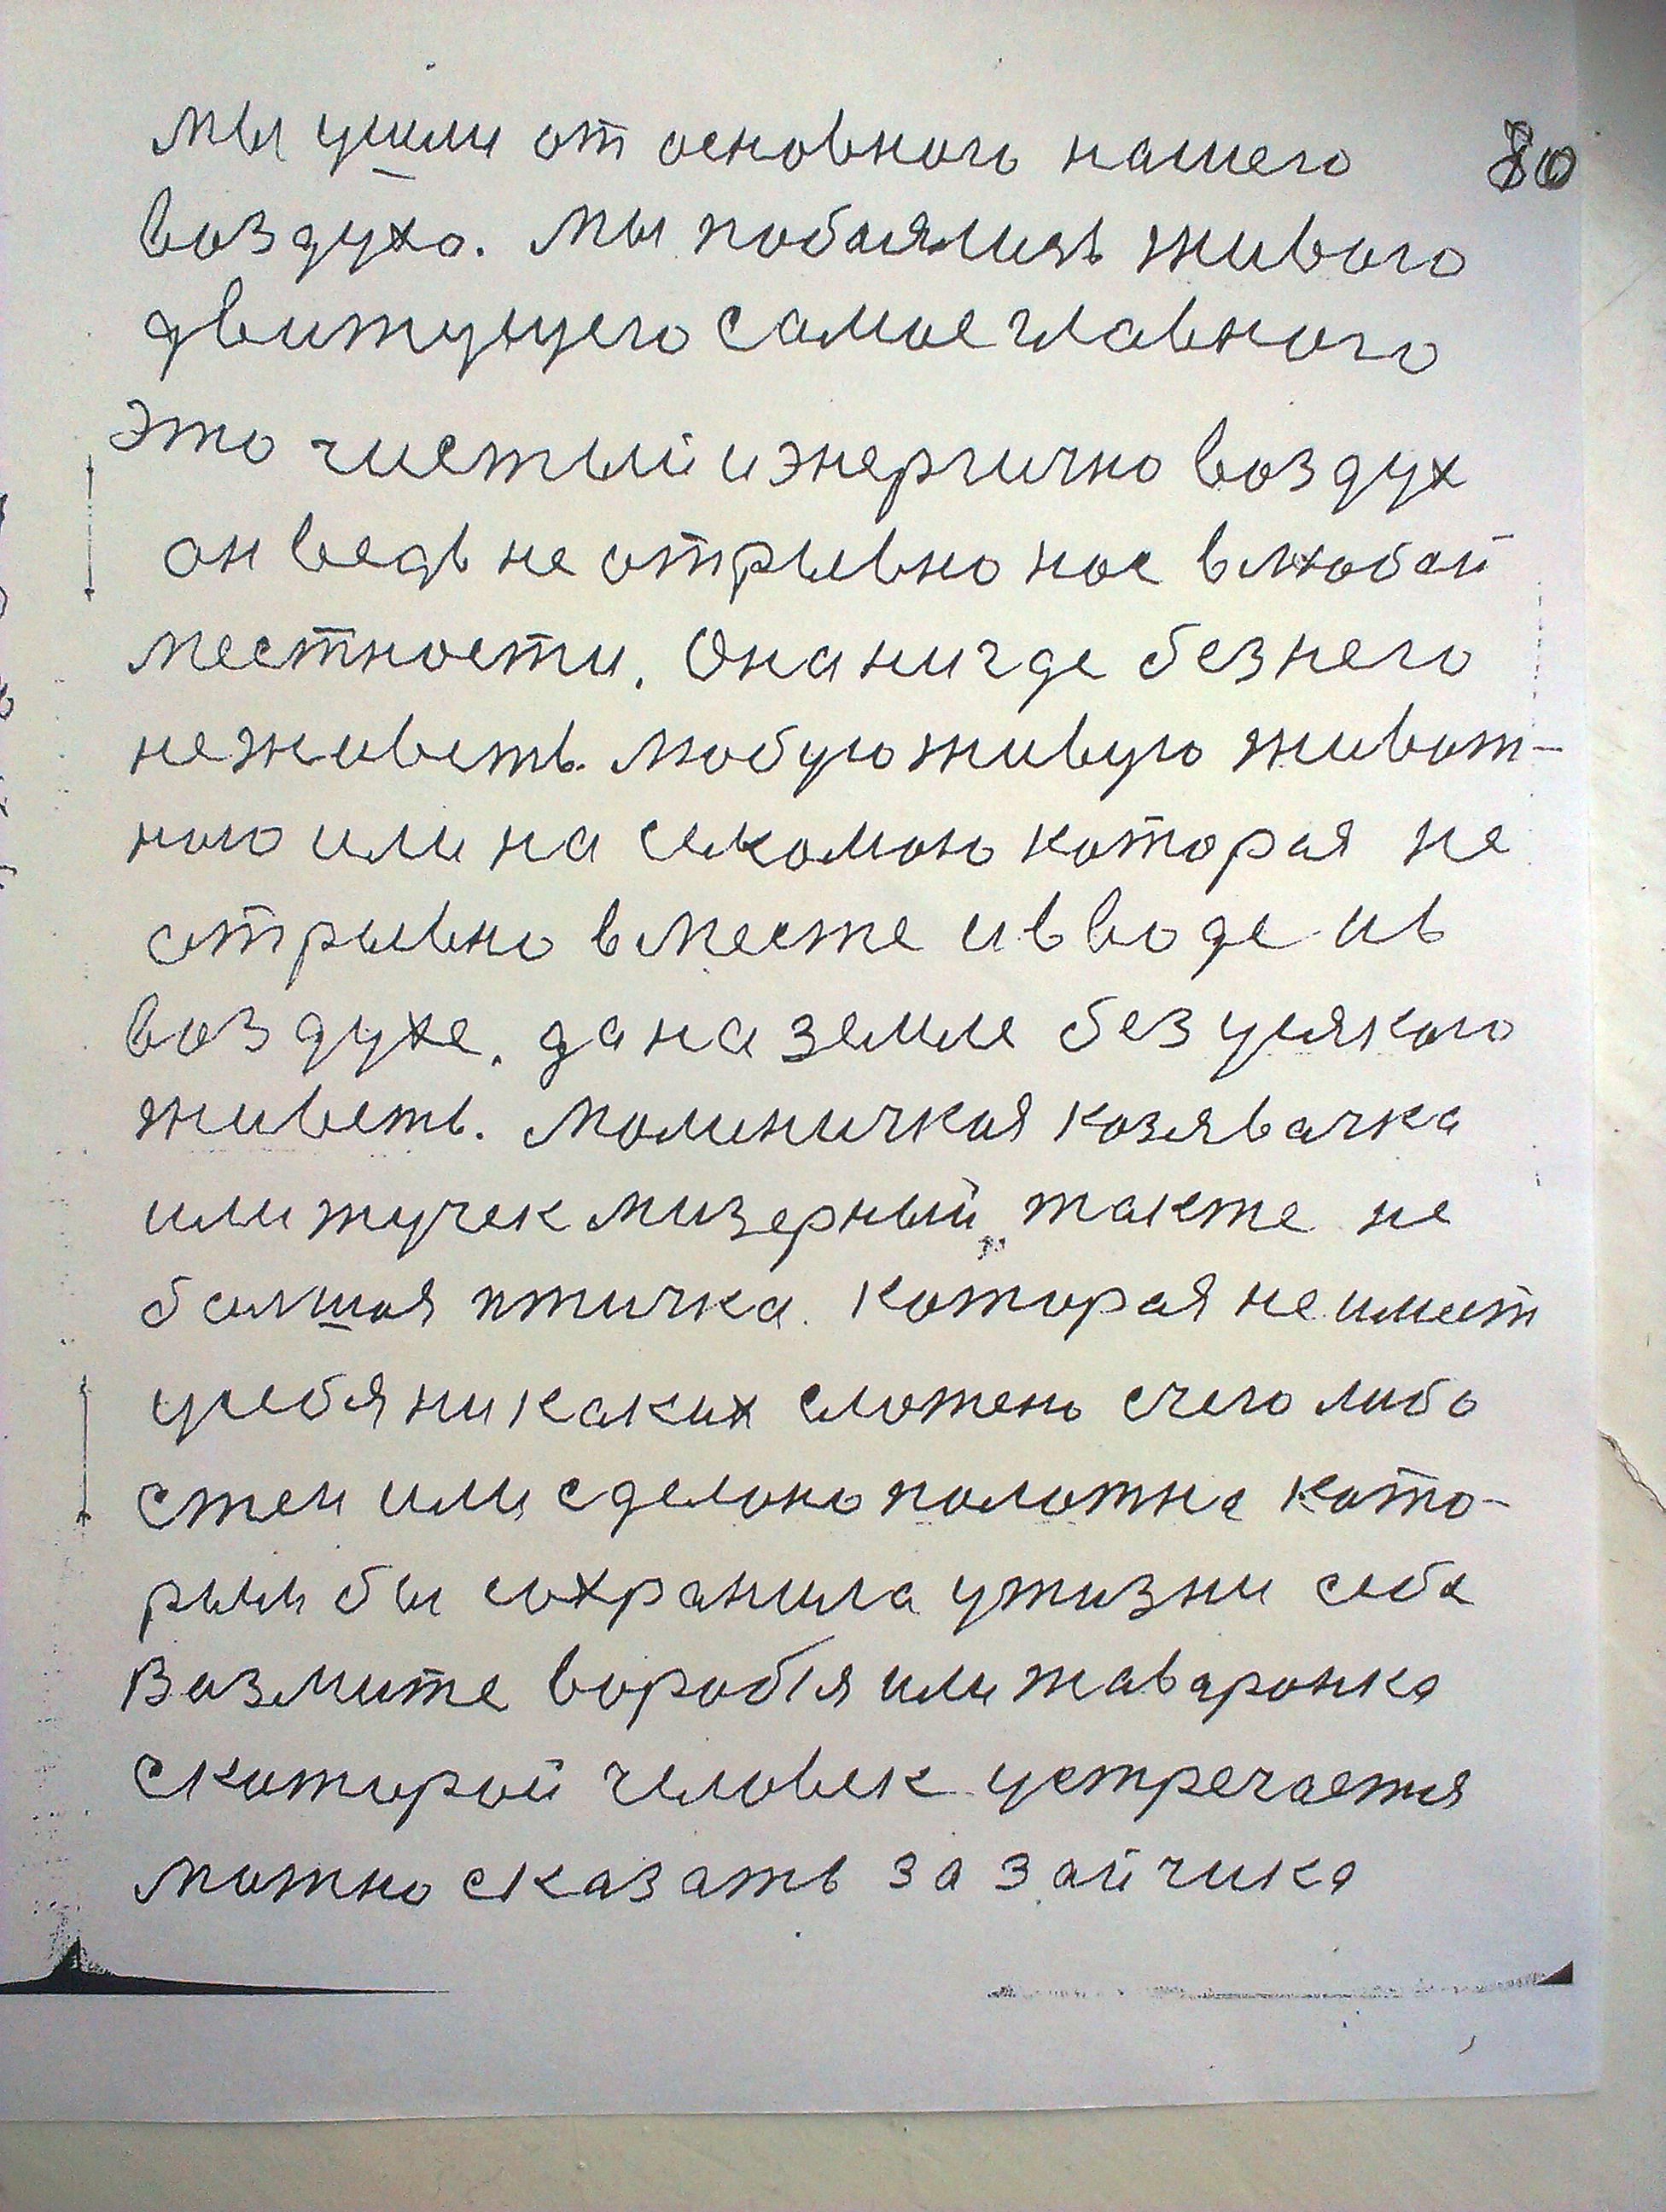 мы ушли от основного нашего 80
воздуха. мы побоялись живого
движущего самое главного
это чистый и энергично воздух
он ведь не отрывно нас в любой
местности. Она нигде без него
не живеть. любую живую живот-
ного или на секомою которая не
отрывно вместе и в воде и в
воздухе. да на земле без усякого
живеть. Малиничкая козявачка
или жучек мизерный также не
балшая птичка. Которая не имеет
у себя никаких сложено с чего либо
стен или сделоно полотна като-
рый бы сохранила у жизни себя
Возмите вороб'я или жаваронка
с каторой человек устречается
можно сказать за зайчика